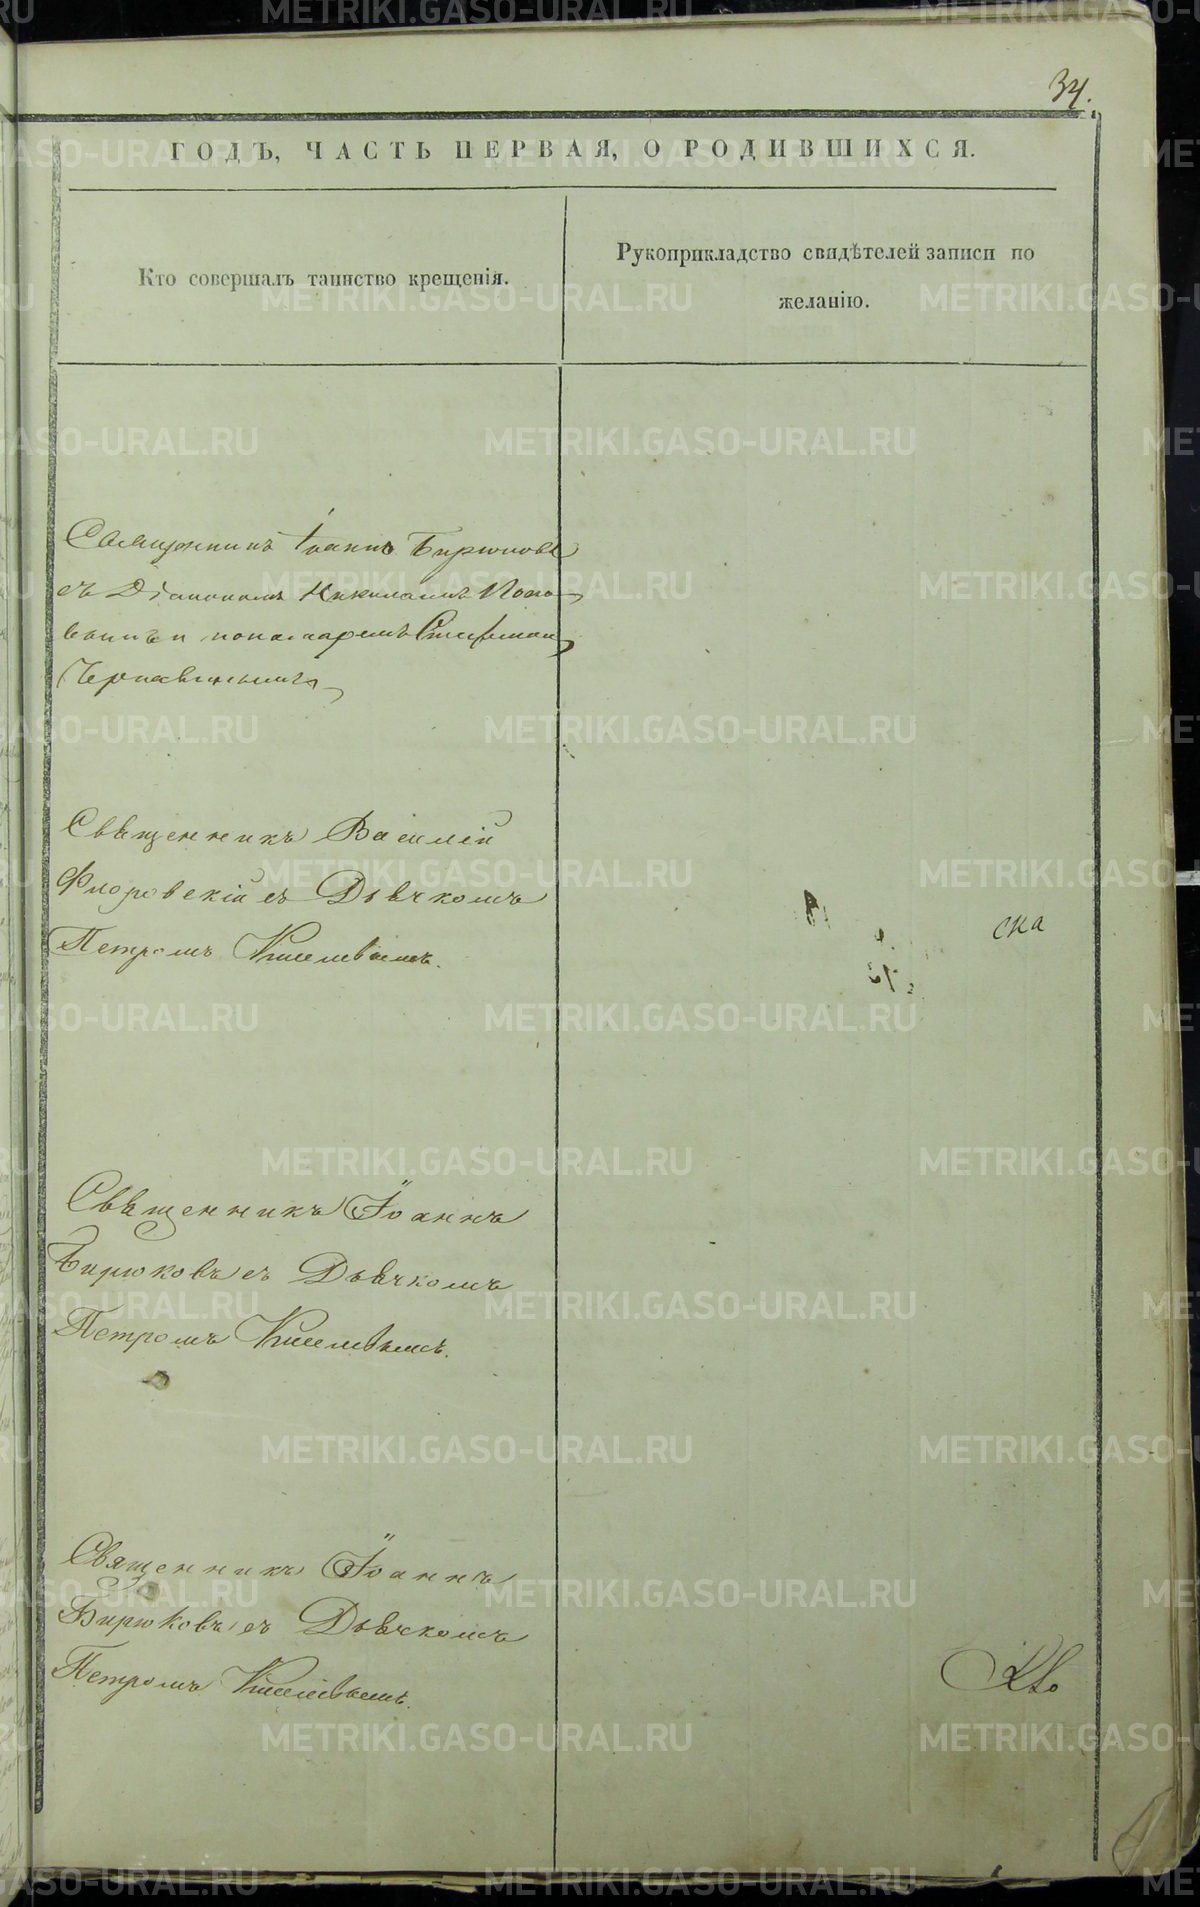 34.
ГОДЪ, ЧАСТЬ ПЕРВАЯ, О РОДИВШИХСЯ.
Кто совершалъ таинство крещенія.
Рукоприкладство свидѣтелей записи по
желанію.
Священникъ Іоаннъ Бирюковъ
съ Діакономъ Николаемъ Попо
вымъ и пономаремъ Стефаном
Чернавинымъ
Свѣщенникъ Василій
Флоровскій съ Дьячкомъ
Петромъ Киселевымъ.
ска
Свѣщенникъ Іоаннъ
Бирюковъ съ Дьячкомъ
Петромъ Киселевымъ.
Священникъ Іоаннъ
Бирюковъ съ Дьячкомъ
Петромъ Киселевымъ.
METRIKI.GASO-URAL.RU